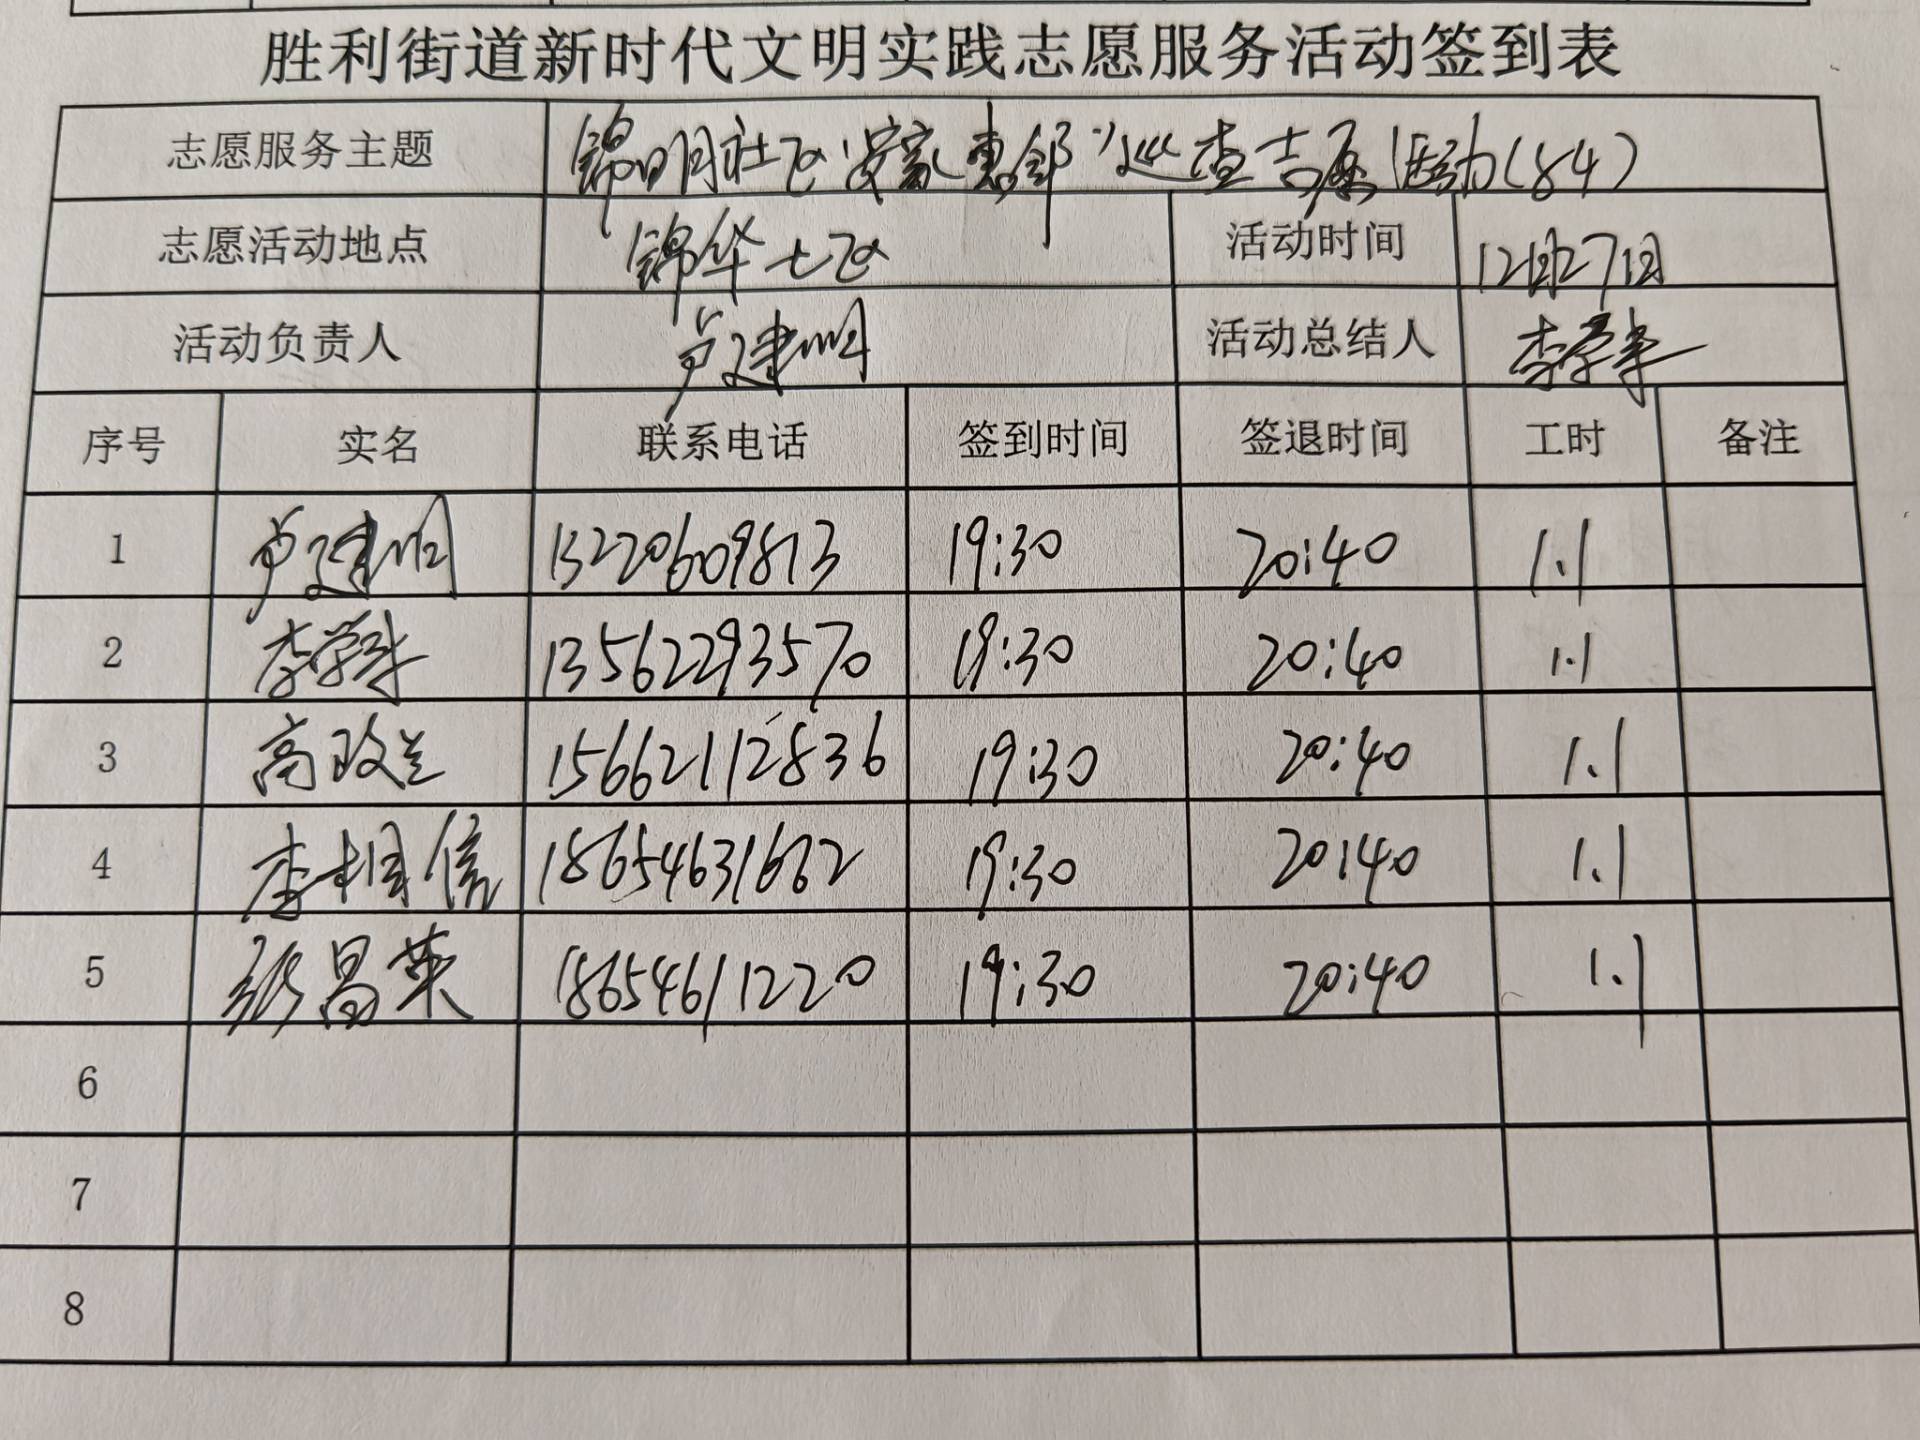 胜利街道新时代文明实践志愿服务活动签到表
志愿服务主题 锦明社区"安家惠邻"巡查志愿活动(84)
志愿活动地点 锦华七区 活动时间 12月27日
活动负责人 卢建明 活动总结人 李学孝
序号 实名 联系电话 签到时间 签退时间 工时 备注
1 卢建明 13220609813 19:30 20:40 1.1
2 李学孝 13562293570 19:30 20:40 1.1
3 高政兰 15662112836 19:30 20:40 1.1
4 李相信 18654631662 19:30 20:40 1.1
5 张昌英 18654611220 19:30 20:40 1.1
6
7
8